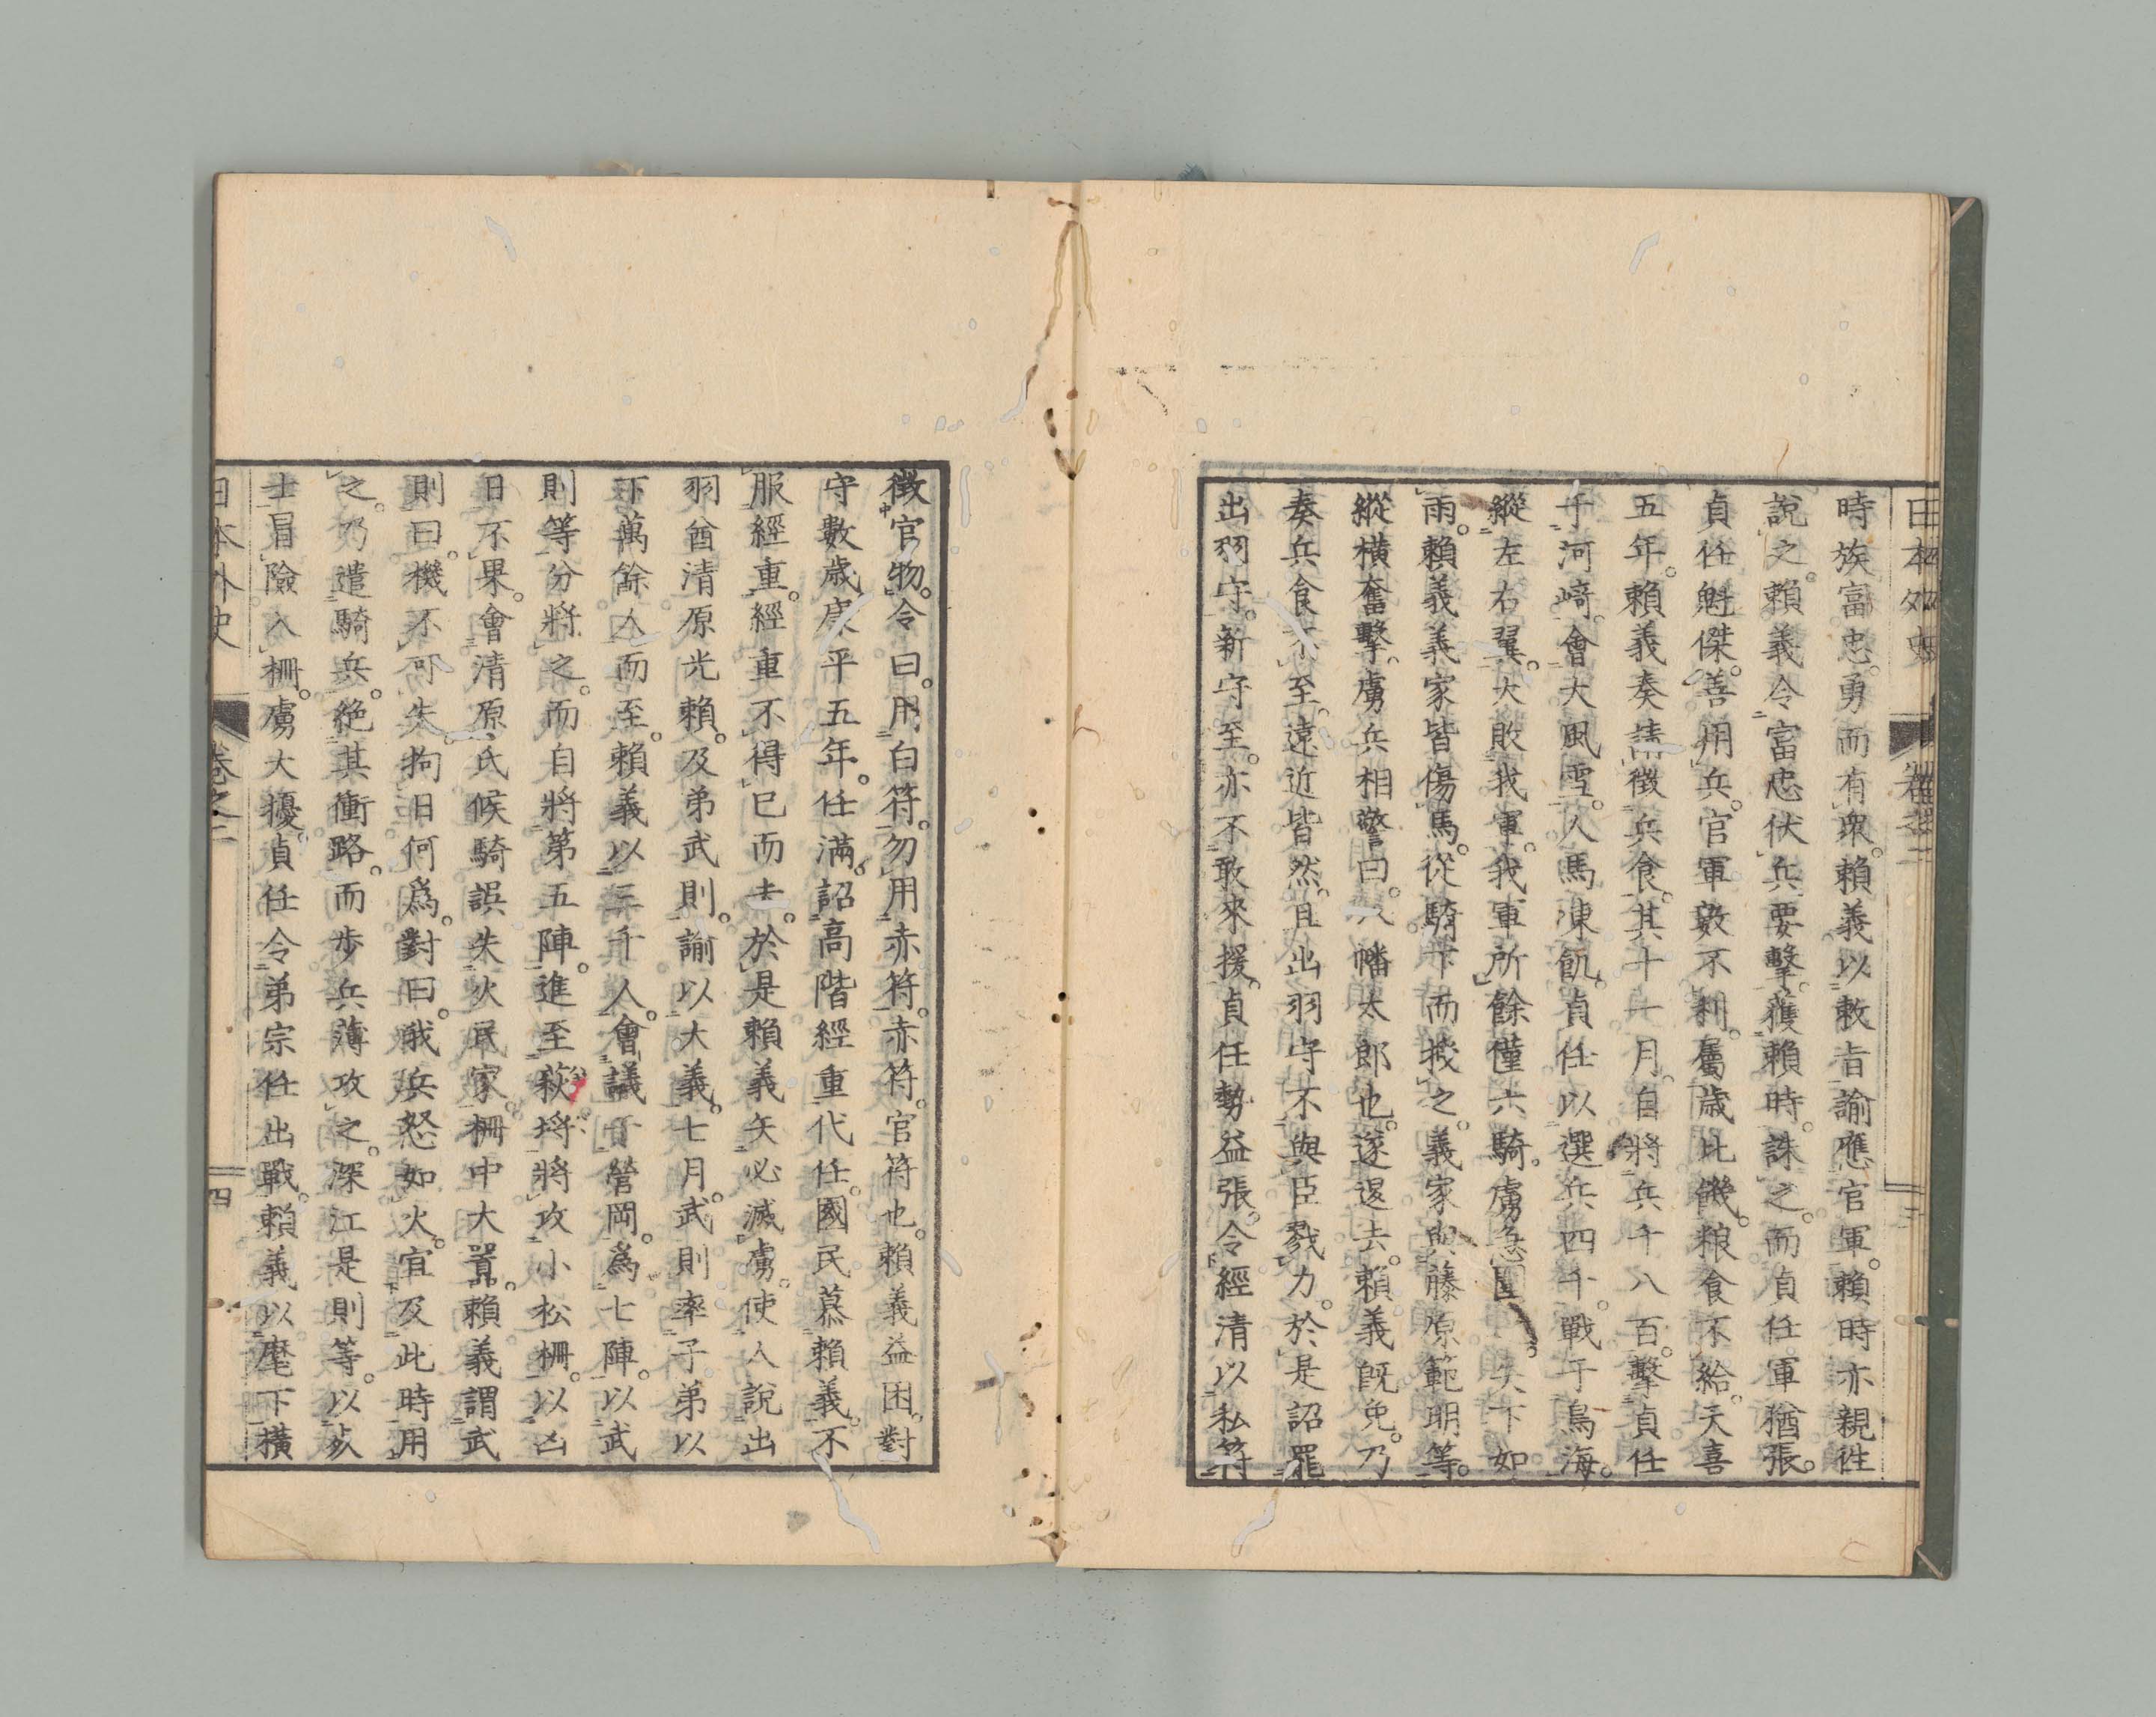 日本外史
卷之二
三
時族富忠。勇而有衆。賴義以敕旨諭應官軍。賴時亦親往
說之。賴義令富忠伏兵要擊。獲賴時。誅之。而貞任軍猶張。
貞任魁傑。善用兵。官軍數不利。屬歲比饑。粮食不給。天喜
五年。賴義奏請徵兵食。其十一月。自將兵千八百。擊貞任
于河崎。會大風雪。人馬凍飢。貞任以選兵四千。戰于鳥海。
縱左右翼。大敗我軍。我軍所餘僅六騎。虜急圍矢下如
雨。賴義義家皆傷馬。從騎下而授之。義家與藤原範明等。
縱橫奮擊。虜兵相警曰。八幡太郎也。遂退去。賴義既免。乃
奏兵食不至。遠近皆然。且出羽守不與臣戮力。於是詔罷
出羽守。新守至。亦不敢來援。貞任勢益張。令經清以私符
徵官物。令曰。用白符。勿用赤符。赤符。官符也。賴義益困。對
守數歲。康平五年。任滿。詔高階經重代任。國民慕賴義。不
服經重。經重不得已而去。於是賴義矢必滅虜。使人說出
羽酋清原光賴。及弟武則。諭以大義。七月。武則率子弟以
下萬餘人而至。賴義以三千人。會議于營岡。爲七陣。以武
則等分將之。而自將第五陣。進至萩埓。將攻小松柵。以凶
日不果。會清原氏候騎誤失火民家。柵中大囂。賴義謂武
則曰。機不可失。拘日何爲。對曰。我兵怒如火。宜及此時用
之。乃遣騎兵。絕其衝路。而步兵薄攻之。深江是則等。以死
士冒險入柵。虜大擾。貞任令弟宗任出戰。賴義以麾下橫
日本外史
卷之二
四